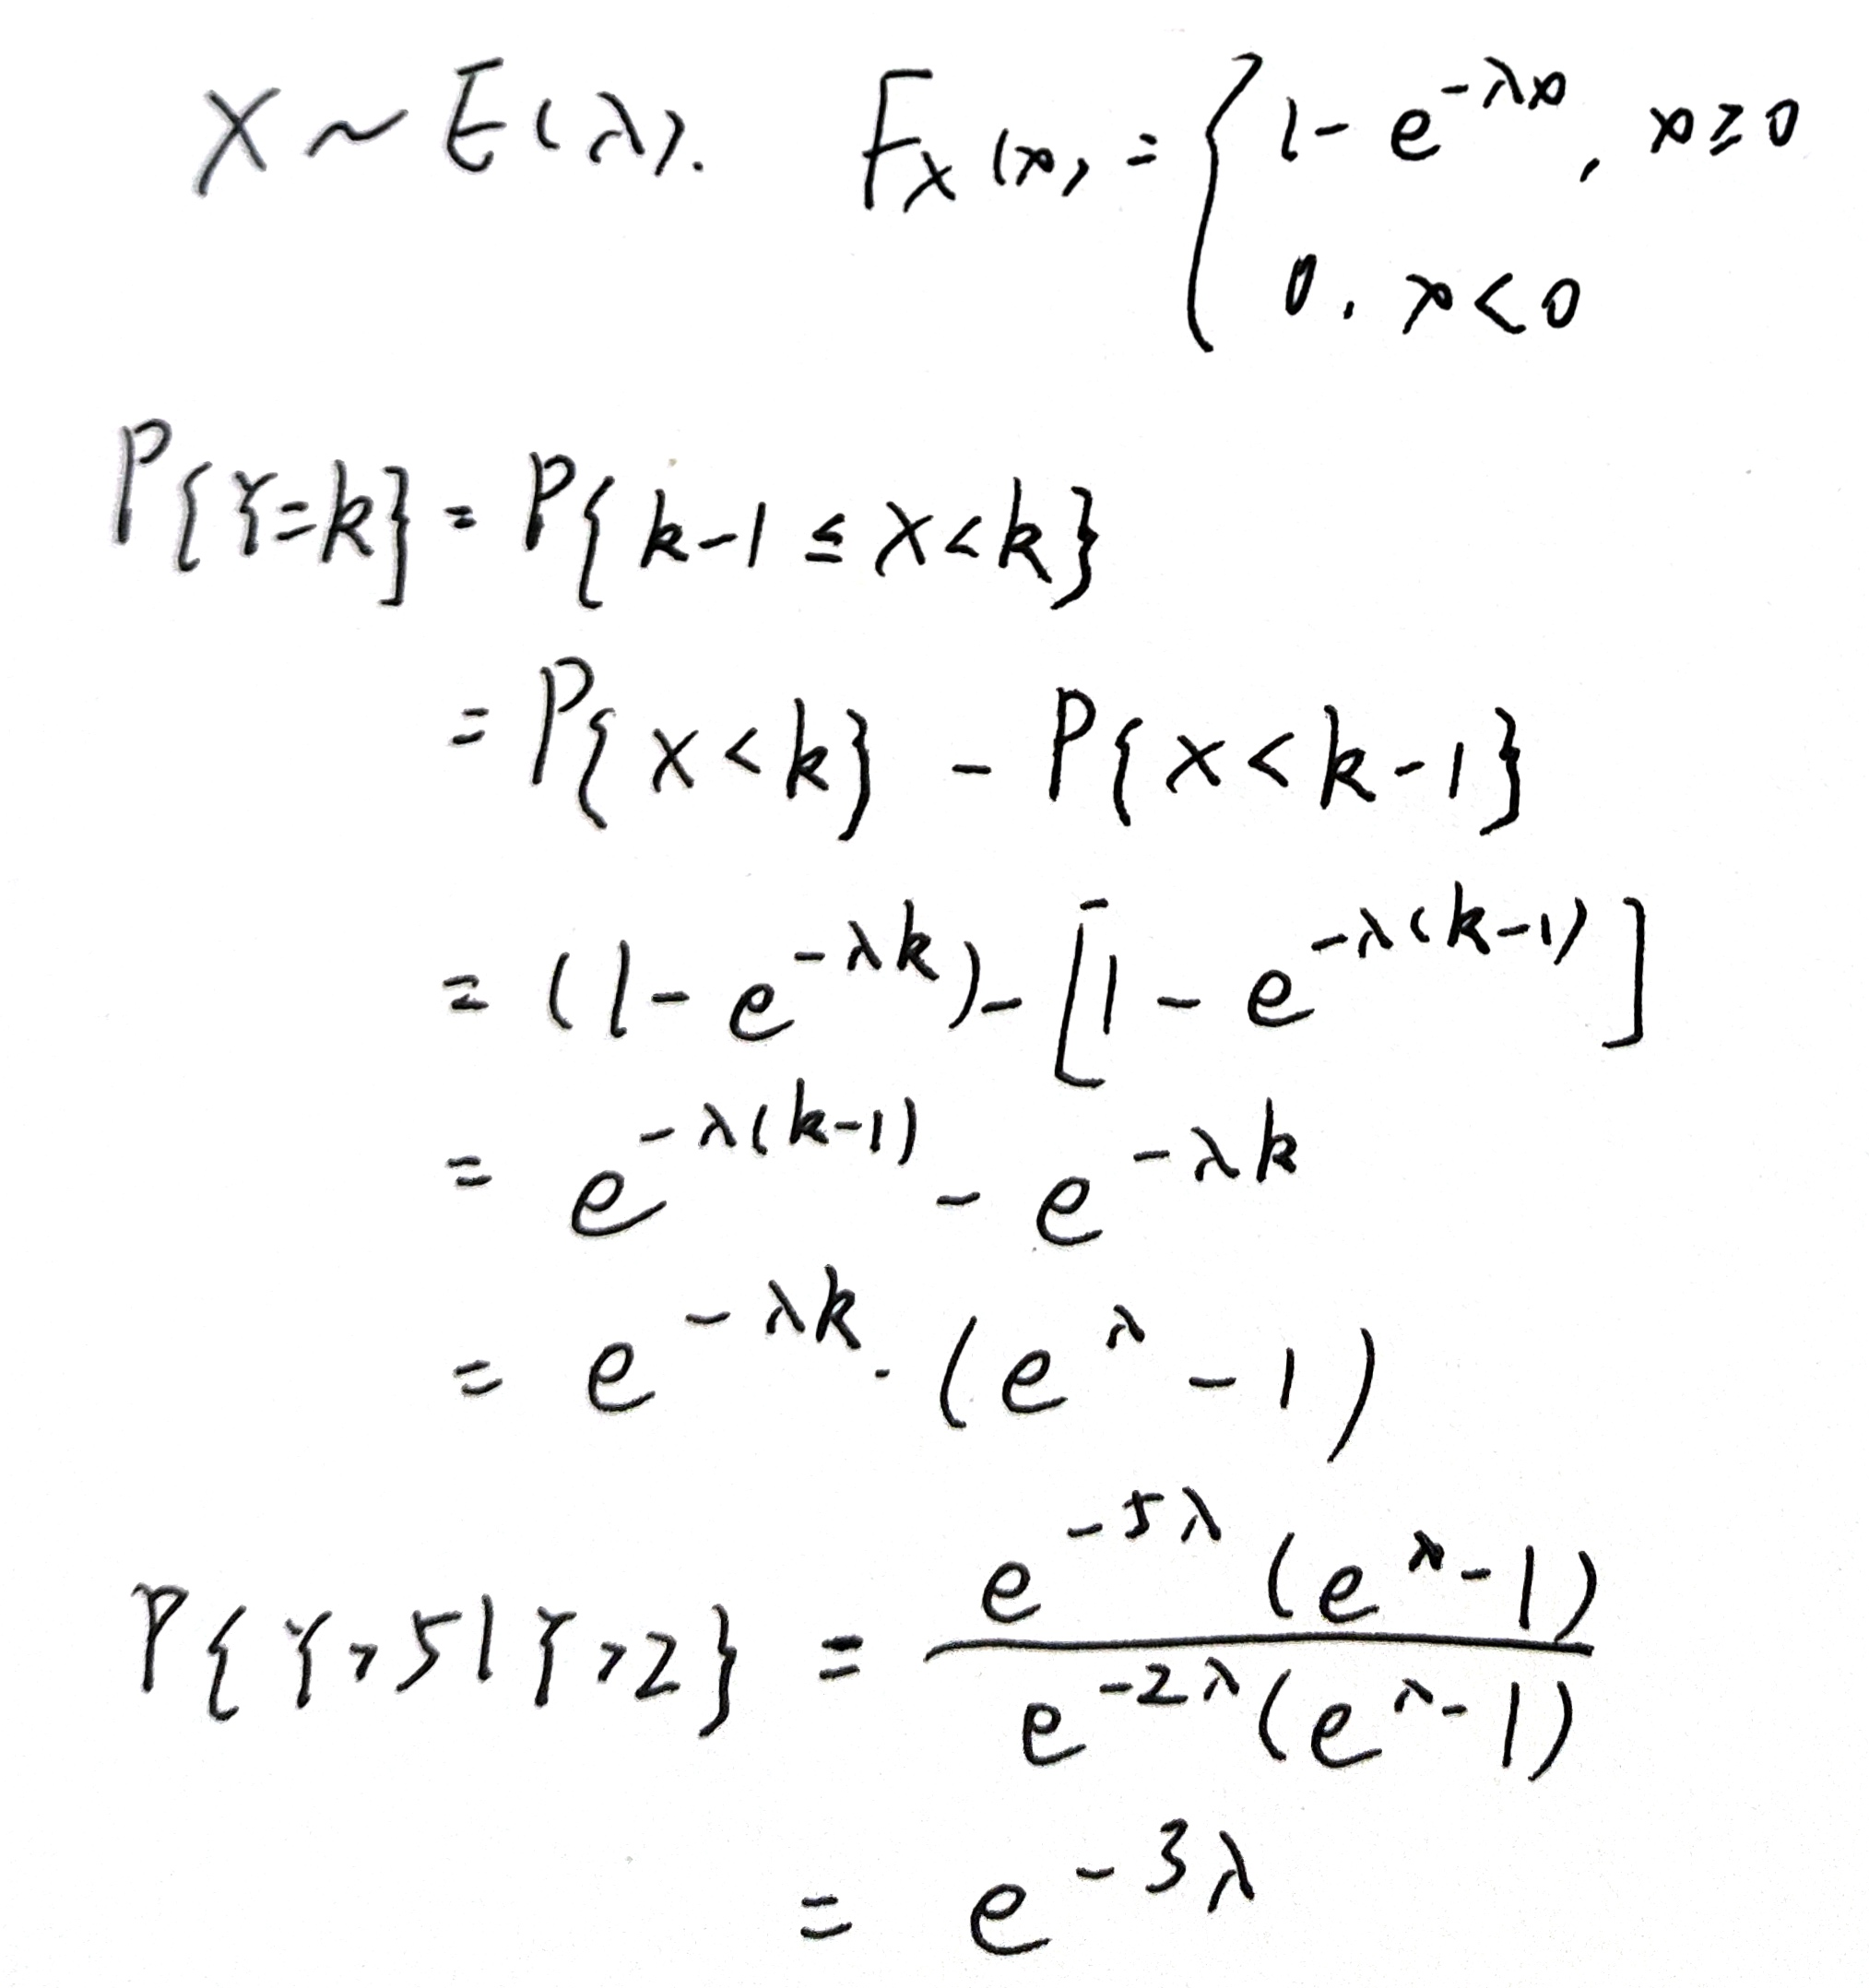 X ~ E(λ). F_X(x) = { 1 - e^{-λx}, x ≥ 0
0, x < 0
P{Y=k} = P{k-1 ≤ X < k}
= P{X < k} - P{X < k-1}
= (1 - e^{-λk}) - [1 - e^{-λ(k-1)}]
= e^{-λ(k-1)} - e^{-λk}
= e^{-λk} · (e^λ - 1)
P{Y>5|Y>2} = \frac{e^{-5λ}(e^λ-1)}{e^{-2λ}(e^λ-1)}
= e^{-3λ}